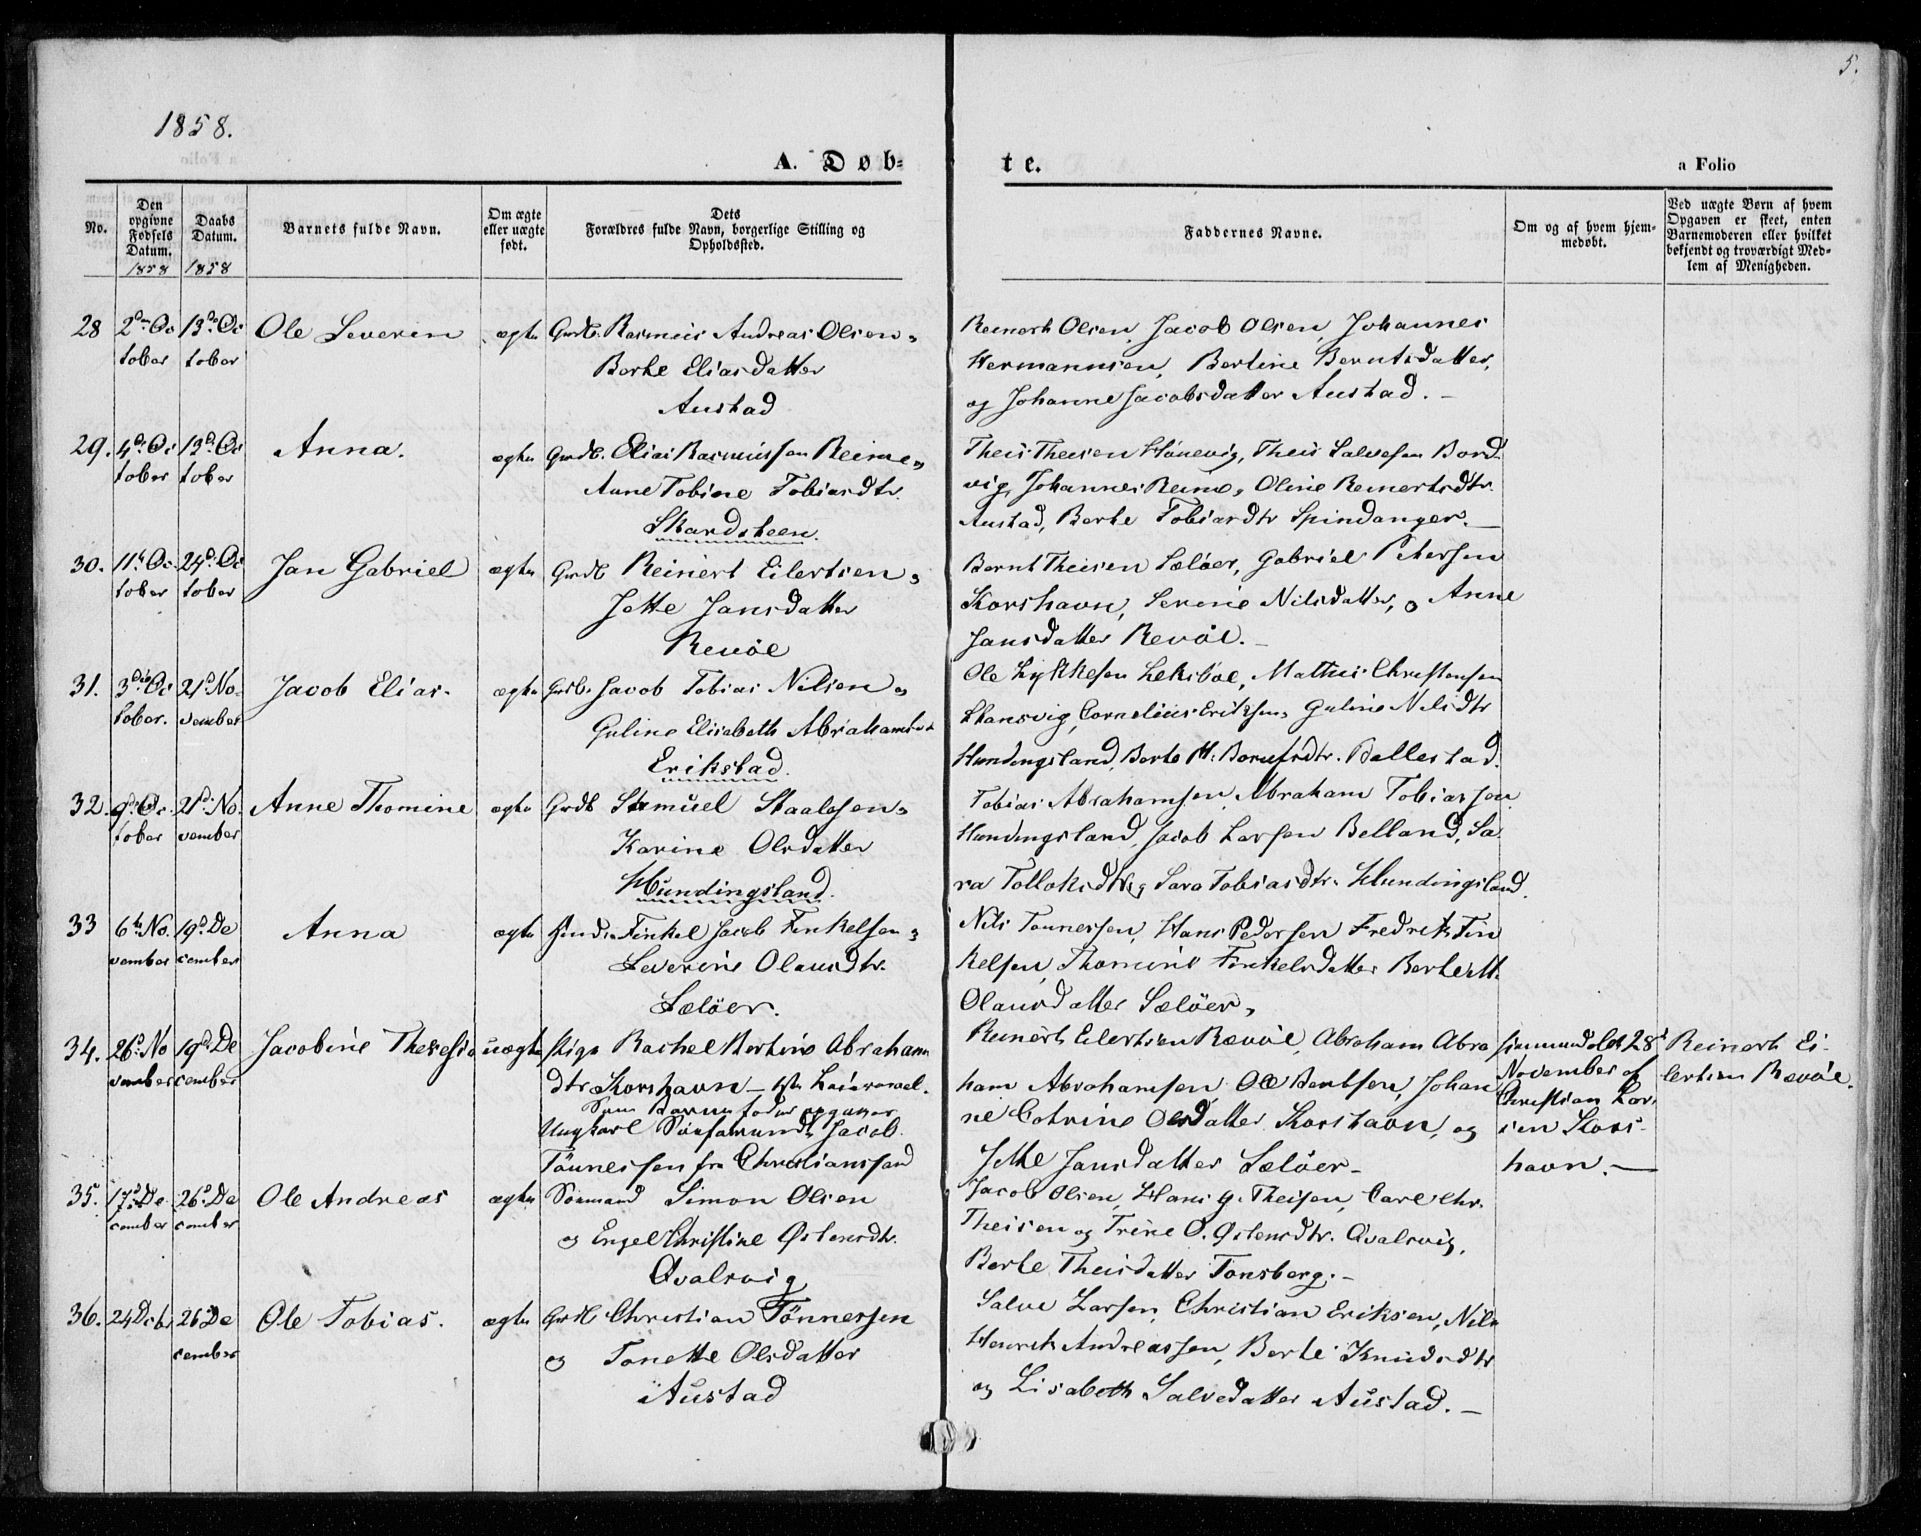 5.
1858.
A. Døb-
te.
a Folio
No.
Den opgivne Fødsels Datum. 1858
Daabs Datum. 1858
Barnets fulde Navn.
Om ægte eller uægte født.
Dets Forældres fulde Navn, borgerlige Stilling og Opholdssted.
Faddernes Navne.
Om og af hvem hjemmedøbt.
Ved uægte Børn af hvem Opgaven er skeet, enten Barnemoderen eller hvilket bekjendt og troværdigt Medlem af Menigheden.
28 2den Oc 13de Oc Ole Severin ægte Grdb. Rasmus Andreas Olsen og
tober tober Berte Eliasdatter
Austad
Reinert Olsen, Jacob Olsen, Johannes
Hermannsen, Bertine Berntsdatter,
og Johanne Jacobsdatter Austad. -
29. 4de Oc 13de Oc Anna. ægte Grdb. Elias Rasmussen Reime og
tober tober Anne Tobine Tobiasdtr.
Skardsteen.
Theis Theisen Hanevig, Theis Salvesen Bord
vig, Johannes Reime, Oline Reinertsdtr.
Austad, Berte Tobiasdtr Spindanger. -
30. 11te Oc 24de Oc Jan Gabriel ægte Grdb Reinert Eilertsen og
tober tober Jette Jansdatter
Revøe
Bernt Theisen Sæløer, Gabriel Petersen
Korshavn, Serine Nilsdatter, og Anne
Jansdatter Revøe. -
31. 3die Oc 21de No Jacob Elias. ægte Grdb. Jacob Tobias Nilsen og
tober. vember Guline Elisabeth Abrahamsdtr
Erikstad.
Ole Lykkesen Leksbøe, Mathis Christensen
Hansvig, Cornelius Eriksen, Guline Nilsdtr
Hundingsland, Berte M. Berntsdtr. Ballestad.
32. 9de Oc 21de No Anne Thomine ægte Grdb Samuel Staalesen og
tober vember Karine Olsdatter
Hundingsland.
Tobias Abrahamsen, Abraham Tobiassen
Hundingsland, Jacob Larsen Belland, Sa
ra Tolloksdtr og Sara Tobiasdtr. Hundingsland.
33 6te No 19de De Anna ægte Finkel Jacob Finkelsen og
vember cember Severine Olausdtr.
Sæløer.
Nils Tønnessen, Hans Pedersen Fredrik Fin
kelsen, Thomine Finkelsdatter Berte M.
Olausdatter Sæløer,
34. 26de No 19de De Jacobine Theresia uægte Pige Rachel Bertine Abrahams
vember cember dtr Korshavn - 1ste Leiermaal.
Som Barnefader opgives
Ungkarl Søefarende Jacob
Tønnessen fra Christianssand
Reinert Eilertsen Revøe, Abraham Abra
ham Abrahamsen, Ole Berntsen, Johan
ne Cotrine Olsdatter Korshavn, og
Jette Jansdatter Sæløer -
hjemmedøbt 28de
November af
Christian Lar
sen Kors-
havn. -
Reinert Ei-
lertsen Revøe.
35. 17de De 26de De Ole Andreas ægte Sømand Simon Olsen
cember cember og Engel Christine Østensdtr.
Qvalsvig
Jacob Olsen, Hans G. Theisen, Carl Chr.
Theisen og Trine O. Østensdtr. Qvalsvig,
Berte Theisdatter Tonsberg. -
36. 24 Decbr 26de De Ole Tobias. ægte Grdb Christian Tønnessen
cember og Tonette Olsdatter
Austad
Salve Larsen, Christian Eriksen, Nils
Henrik Andreassen, Berte Knudsdtr
og Lisabeth Salvedatter Austad. -